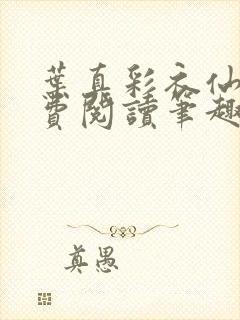 葉真彩衣仙
費閱讀筆趣
真愚